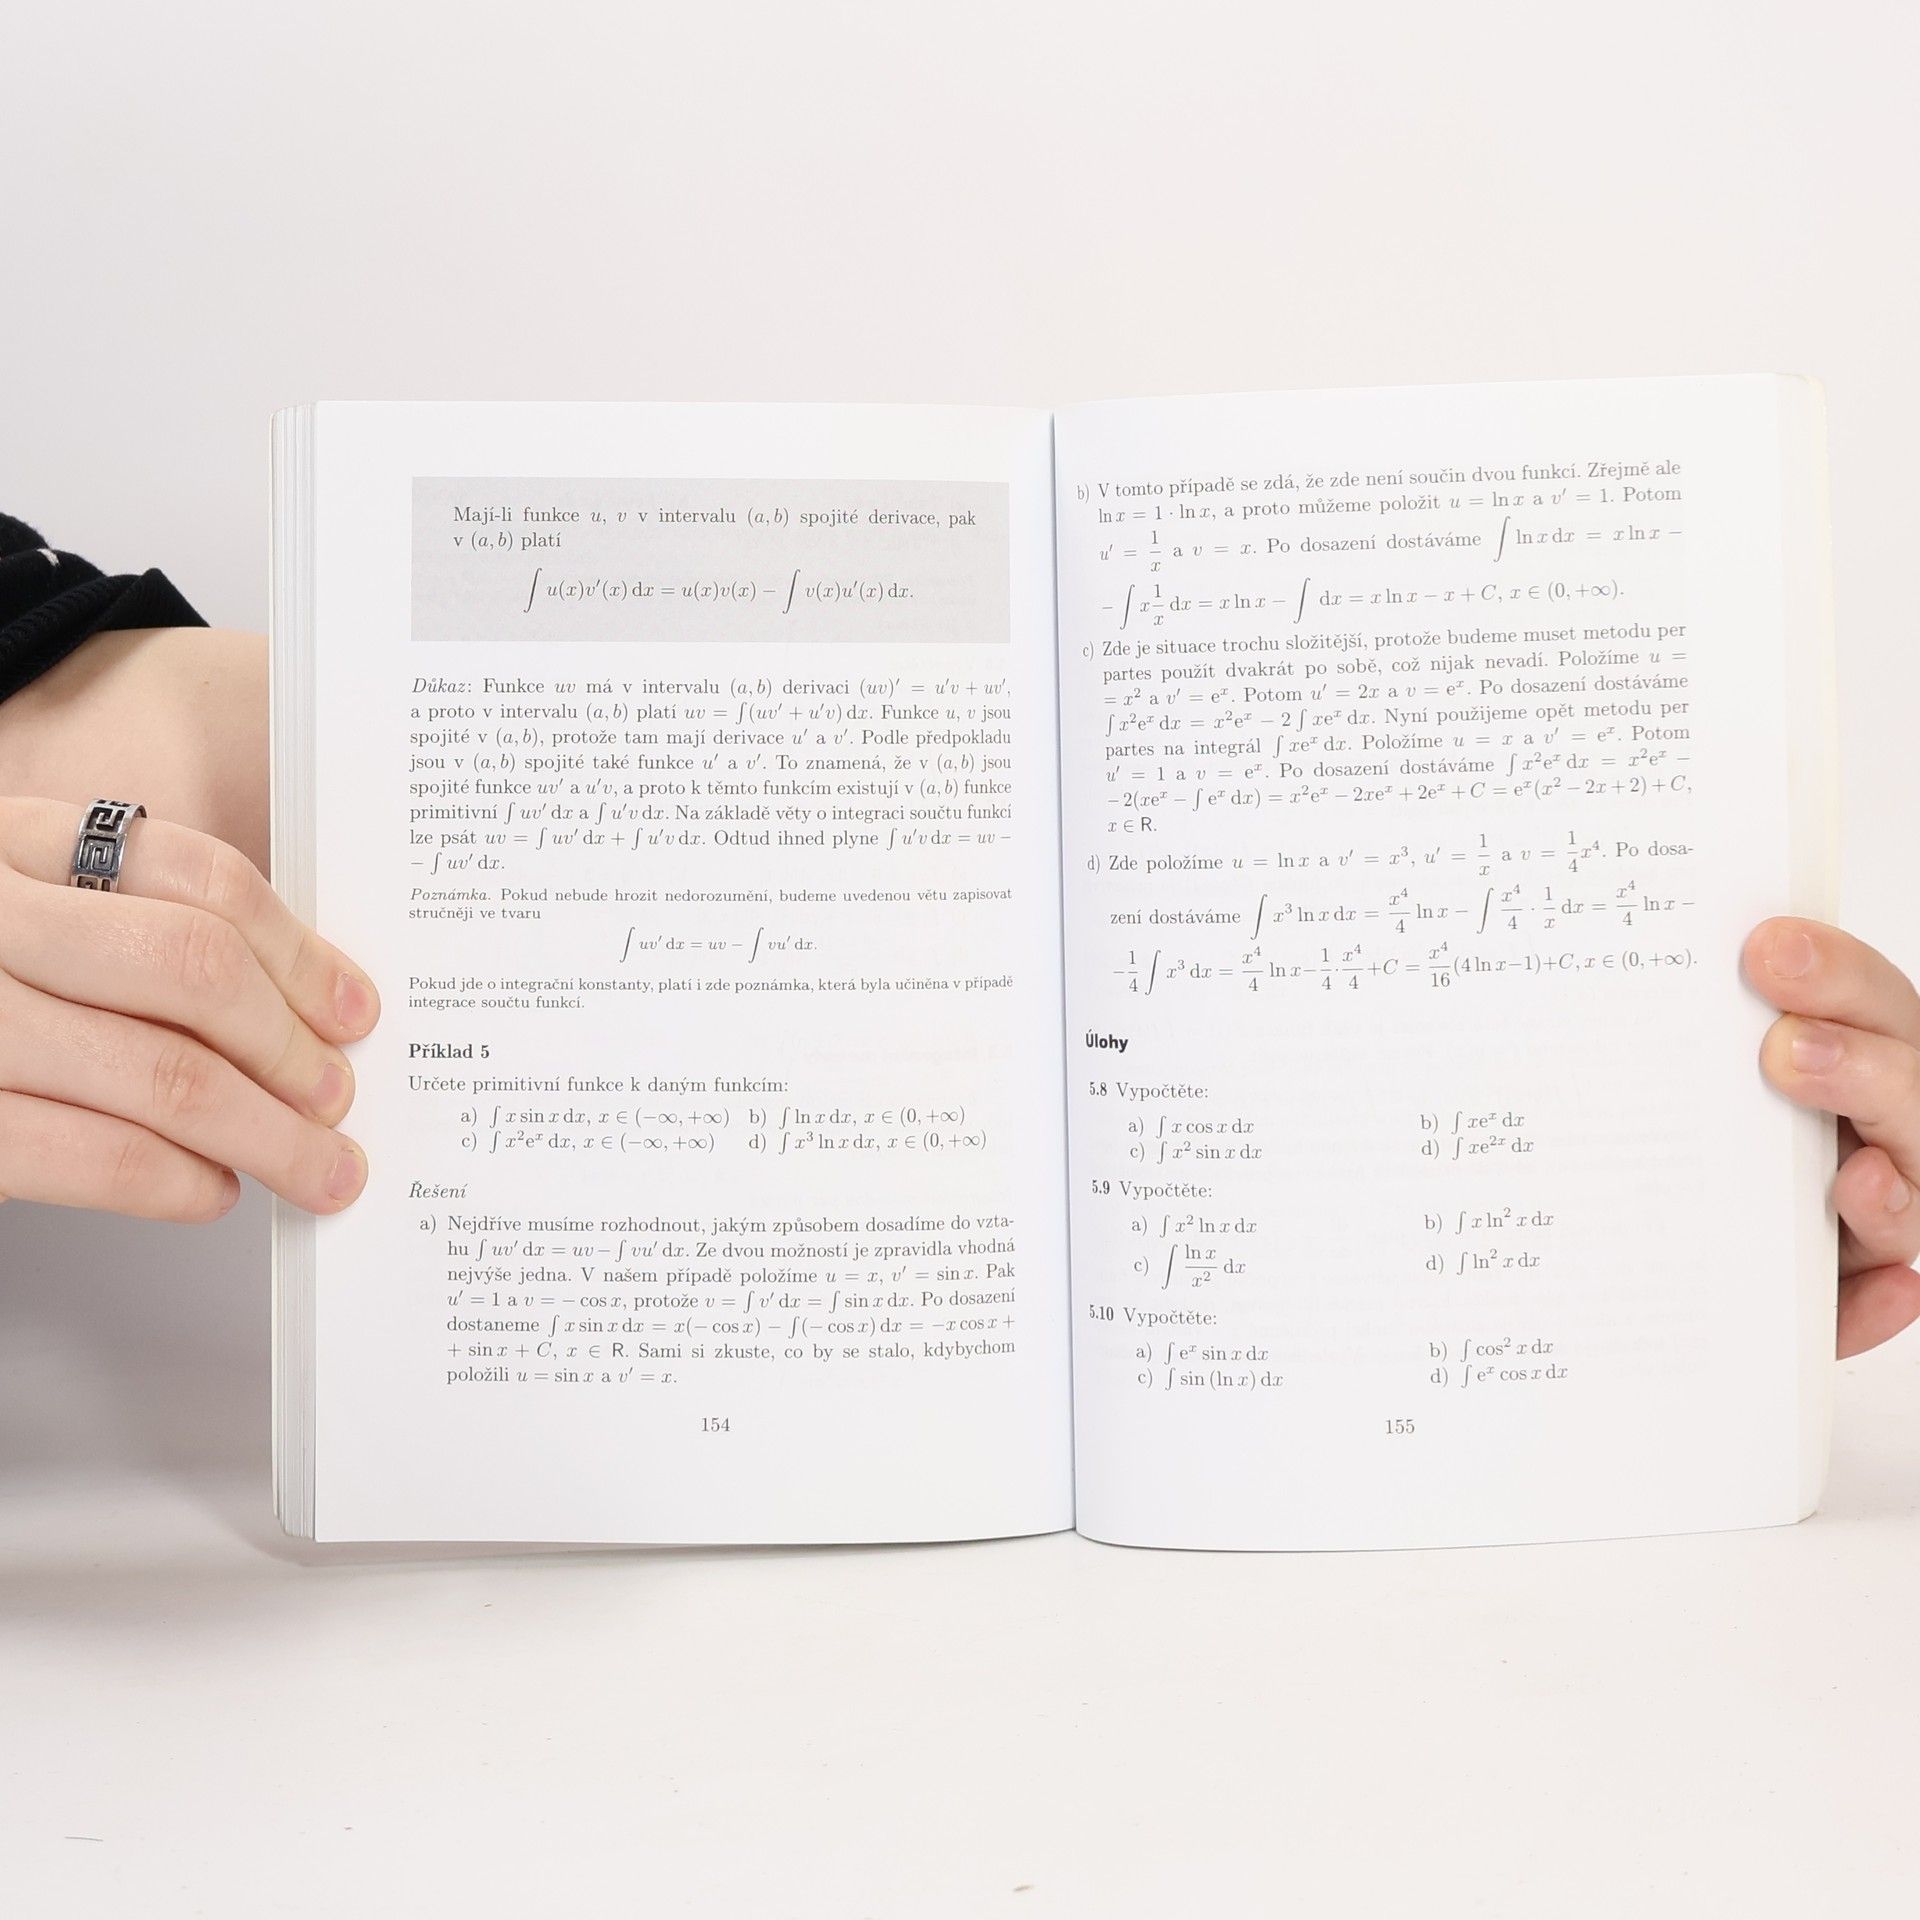 Mají-li funkce u, v v intervalu (a, b) spojité derivace, pak
v (a, b) platí
∫ u(x)v′(x) dx = u(x)v(x) − ∫ v(x)u′(x) dx.
Důkaz: Funkce uv má v intervalu (a, b) derivaci (uv)′ = u′v + uv′,
a proto v intervalu (a, b) platí uv = ∫(uv′ + u′v) dx. Funkce u, v jsou
spojité v (a, b), protože tam mají derivace u′ a v′. Podle předpokladu
jsou v (a, b) spojité také funkce u′ a v′. To znamená, že v (a, b) jsou
spojité funkce uv′ a u′v, a proto k těmto funkcím existují v (a, b) funkce
primitivní ∫ uv′ dx a ∫ u′v dx. Na základě věty o integraci součtu funkcí
lze psát uv = ∫ uv′ dx + ∫ u′v dx. Odtud ihned plyne ∫ u′v dx = uv −
− ∫ uv′ dx.
Poznámka. Pokud nebude hrozit nedorozumění, budeme uvedenou větu zapisovat
stručněji ve tvaru
∫ uv′ dx = uv − ∫ vu′ dx.
Pokud jde o integrační konstanty, platí i zde poznámka, která byla učiněna v případě
integrace součtu funkcí.
Příklad 5
Určete primitivní funkce k daným funkcím:
a) ∫ x sin x dx, x ∈ (−∞, +∞) b) ∫ ln x dx, x ∈ (0, +∞)
c) ∫ x²eˣ dx, x ∈ (−∞, +∞) d) ∫ x³ ln x dx, x ∈ (0, +∞)
Řešení
a) Nejdříve musíme rozhodnout, jakým způsobem dosadíme do vzta-
hu ∫ uv′ dx = uv − ∫ vu′ dx. Ze dvou možností je zpravidla vhodná
nejvýše jedna. V našem případě položíme u = x, v′ = sin x. Pak
u′ = 1 a v = − cos x, protože v = ∫ v′ dx = ∫ sin x dx. Po dosazení
dostaneme ∫ x sin x dx = x(− cos x) − ∫(− cos x) dx = −x cos x +
+ sin x + C, x ∈ R. Sami si zkuste, co by se stalo, kdybychom
položili u = sin x a v′ = x.
154
b) V tomto případě se zdá, že zde není součin dvou funkcí. Zřejmě ale
ln x = 1 · ln x, a proto můžeme položit u = ln x a v′ = 1. Potom
u′ = 1/x a v = x. Po dosazení dostáváme ∫ ln x dx = x ln x −
− ∫ x 1/x dx = x ln x − ∫ dx = x ln x − x + C, x ∈ (0, +∞).
c) Zde je situace trochu složitější, protože budeme muset metodu per
partes použít dvakrát po sobě, což nijak nevadí. Položíme u =
= x² a v′ = eˣ. Potom u′ = 2x a v = eˣ. Po dosazení dostáváme
∫ x²eˣ dx = x²eˣ − 2 ∫ xeˣ dx. Nyní použijeme opět metodu per
partes na integrál ∫ xeˣ dx. Položíme u = x a v′ = eˣ. Potom
u′ = 1 a v = eˣ. Po dosazení dostáváme ∫ x²eˣ dx = x²eˣ −
− 2(xeˣ − ∫ eˣ dx) = x²eˣ − 2xeˣ + 2eˣ + C = eˣ(x² − 2x + 2) + C,
x ∈ R.
d) Zde položíme u = ln x a v′ = x³, u′ = 1/x a v = 1/4 x⁴. Po dosa-
zení dostáváme ∫ x³ ln x dx = x⁴/4 ln x − ∫ x⁴/4 · 1/x dx = x⁴/4 ln x −
− 1/4 ∫ x³ dx = x⁴/4 ln x − 1/4 · x⁴/4 + C = x⁴/16 (4 ln x − 1) + C, x ∈ (0, +∞).
Úlohy
5.8 Vypočtěte:
a) ∫ x cos x dx b) ∫ xeˣ dx
c) ∫ x² sin x dx d) ∫ xe²ˣ dx
5.9 Vypočtěte:
a) ∫ x² ln x dx b) ∫ x ln² x dx
c) ∫ ln x/x² dx d) ∫ ln² x dx
5.10 Vypočtěte:
a) ∫ eˣ sin x dx b) ∫ cos² x dx
c) ∫ sin (ln x) dx d) ∫ eˣ cos x dx
155